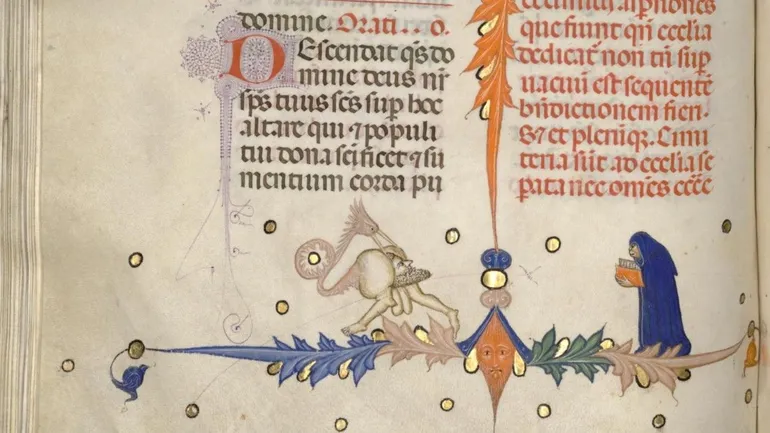 domine. Orati...o.
Descendat q̃s do
mine deus nr̃
sp̃s tuus sc̃s sup hoc
altare qui ⁊ populi
tui dona sc̃ificet ⁊ su
mentium corda pu
que fiunt qñ ecclia
dedicat non tñ sup
uacuũ est sequentẽ
bñdictionem fieri.
teria sũt ad ecclia se
pata nec om̃es